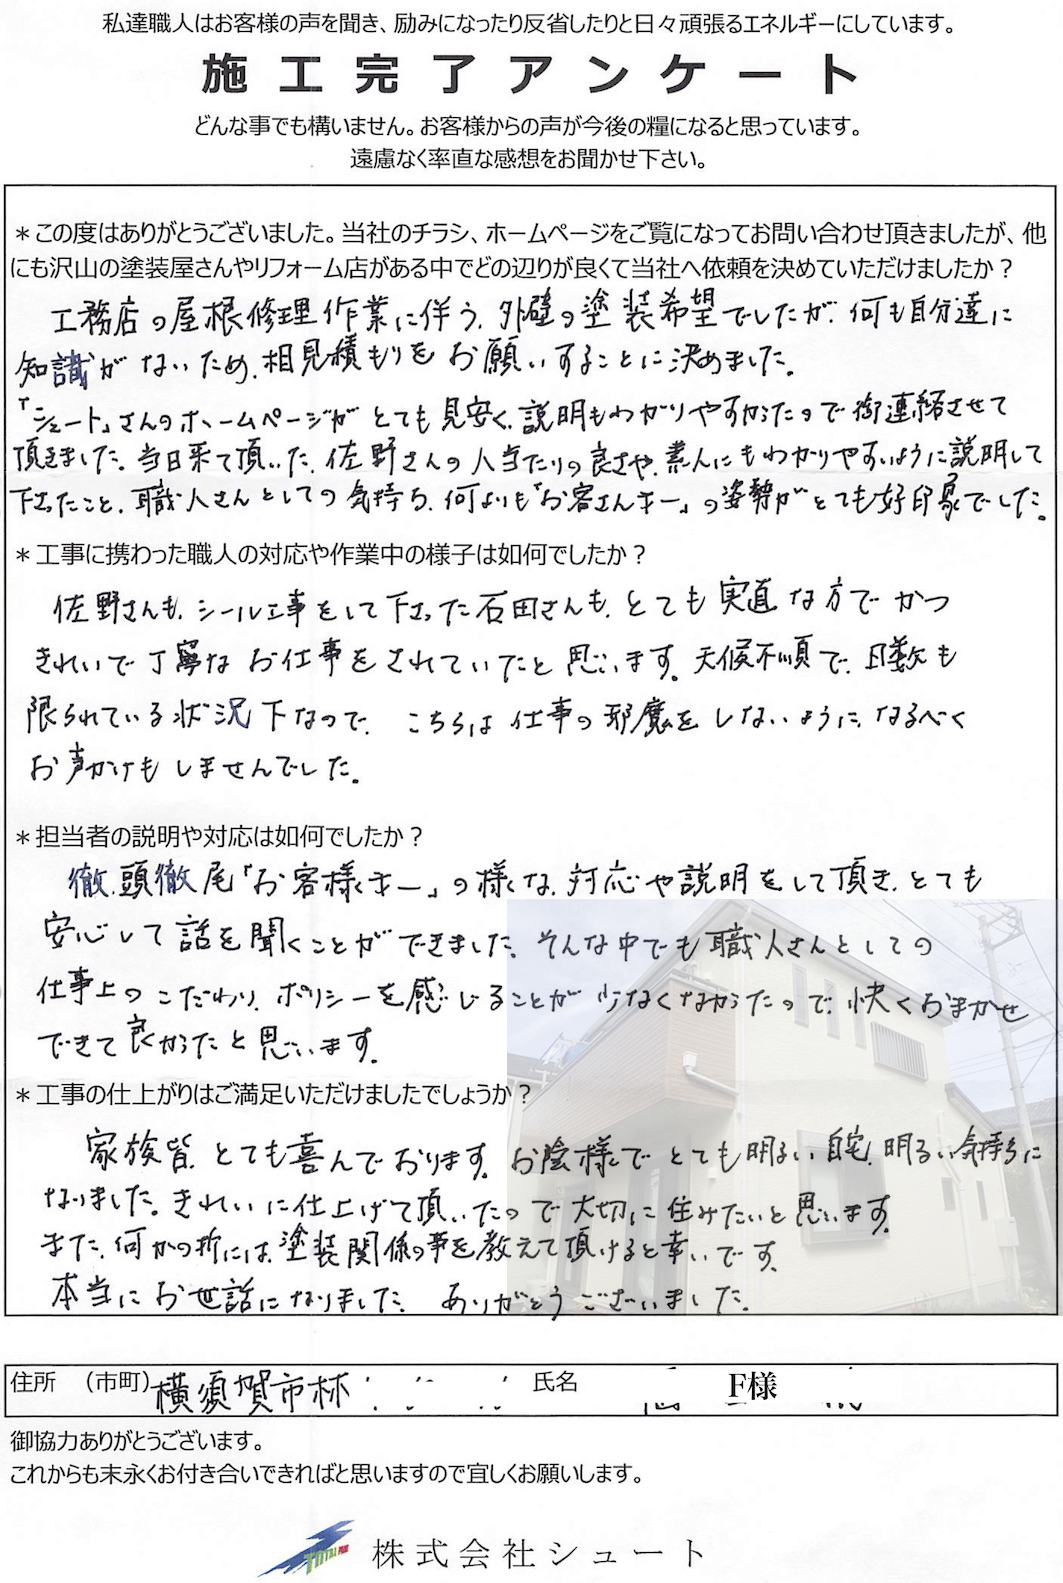 私達職人はお客様の声を聞き、励みになったり反省したりと日々頑張るエネルギーにしています。
施工完了アンケート
どんな事でも構いません。お客様からの声が今後の糧になると思っています。
遠慮なく率直な感想をお聞かせ下さい。
＊この度はありがとうございました。当社のチラシ、ホームページをご覧になってお問い合わせ頂きましたが、他
にも沢山の塗装屋さんやリフォーム店がある中でどの辺りが良くて当社へ依頼を決めていただけましたか？
工務店の屋根修理作業に伴う、外壁の塗装希望でしたが、何も自分達に
知識がないため、相見積もりをお願いすることに決めました。
「シュート」さんのホームページがとても見安く、説明もわかりやすかったので御連絡させて
頂きました。当日来て頂いた、佐野さんの人当たりの良さや、素人にもわかりやすいように説明して
下さったこと、職人さんとしての気持ち、何よりも「お客さん第一」の姿勢がとても好印象でした。
＊工事に携わった職人の対応や作業中の様子は如何でしたか？
佐野さんも、シール工事をして下さった石田さんも、とても実直な方でかつ
きれいで丁寧なお仕事をされていたと思います。天候不順で、日数も
限られている状況下なので、こちらは仕事の邪魔をしないように、なるべく
お声かけもしませんでした。
＊担当者の説明や対応は如何でしたか？
徹頭徹尾「お客様第一」の様な、対応や説明をして頂き、とても
安心して話を聞くことができました。そんな中でも職人さんとしての
仕事上のこだわり、ポリシーを感じることが少なくなかったので、快くおまかせ
できて良かったと思います。
＊工事の仕上がりはご満足いただけましたでしょうか？
家族皆、とても喜んでおります。お陰様でとても明るい自宅、明るい気持ちに
なりました。きれいに仕上げて頂いたので大切に住みたいと思います。
また、何かの折には、塗装関係の事を教えて頂けると幸いです。
本当にお世話になりました。ありがとうございました。
住所　（市町）横須賀市林　氏名　F様
御協力ありがとうございます。
これからも末永くお付き合いできればと思いますので宜しくお願いします。
TOTAL PAINT 株式会社シュート